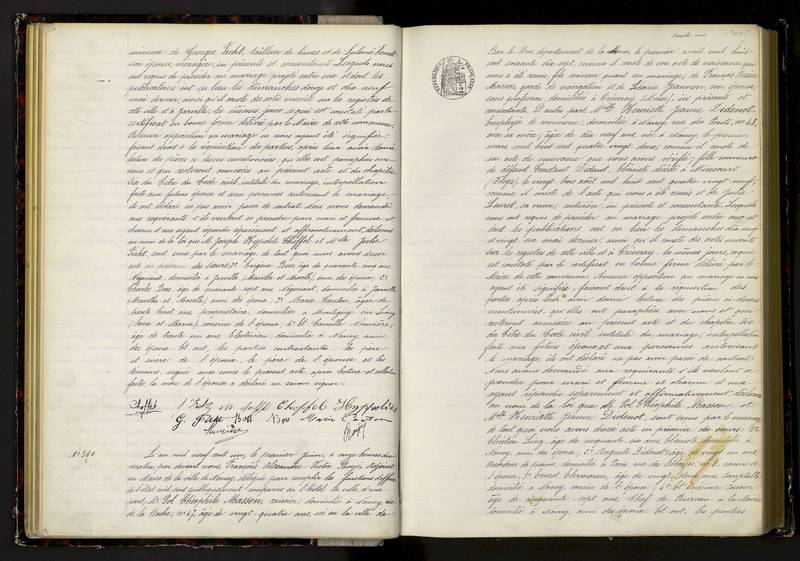 mineur de Georges Fecht, tailleur de limes et de Salomé
son épouse, ménagère, ici présents et consentants. Lesquels nous
ont requis de procéder au mariage projeté entre eux et dont les
publications ont eu lieu les dimanches douze et dix neuf
mai dernier, ainsi qu'il conste des actes inscrits sur les registres de
cette ville et à Jarville les mêmes jours, ce qui est constaté par le
certificat en bonne forme délivré par le Maire de cette commune.
Aucune opposition au mariage ne nous ayant été signifiée,
faisant droit à la réquisition des parties, après leur avoir donné
lecture des pièces ci-dessus mentionnées, qu'elles ont paraphées avec
nous et qui resteront annexées au présent acte et du chapitre
Six du titre du Code civil, intitulé du mariage, interpellation
faite aux futurs époux et aux personnes autorisant le mariage,
ils ont déclaré ne pas avoir passé de contrat. Nous avons demandé
aux requérants s'ils veulent se prendre pour mari et femme et
chacun d'eux ayant répondu séparément et affirmativement, déclarons
au nom de la loi que M. Joseph Hyppolite Choffel et Melle Julie
Fecht, sont unis par le mariage, de tout quoi nous avons dressé
acte en présence des sieurs: 1° Eugène Bor, âgé de quarante-cinq ans,
Négociant, domicilié à Jarville (Meurthe et Moselle), ami des époux; 2°
Charles Bor, âgé de quarante sept ans, Négociant, domicilié à Jarville
(Meurthe et Moselle), ami des époux; 3° Marie Canton, âgée de
trente huit ans, propriétaire, domiciliée à Montigny sur Loing
(Seine et Marne), cousine de l'époux; 4° et Camille
âgé de trente un ans, Électricien, domicilié à Nancy, ami
des époux. Et ont, les parties contractantes, les père
et mère de l'époux, le père de l'épouse et les
témoins, signé avec nous le présent acte après lecture et collation
faite, la mère de l'épouse a déclaré ne savoir signer.
Choffel J. Fecht Choffel Hyppolite
G. Fecht Bor Bor Marie Canton
N° 360
L'an mil neuf cent un, le premier Juin, à onze heures du
matin, par devant nous, François Alexandre Victor Adjoint
au Maire de la ville de Nancy, délégué pour remplir les fonctions d'officier
de l'état civil, sont publiquement comparus en l'Hôtel de Ville, d'une
part, M. Pol Théophile Masson, caissier, domicilié à Nancy, rue
de la Hache, n° 47, âgé de vingt-quatre ans, né en la ville de
trente-un
RÉPUBLIQUE FRANÇAISE
Bar-le-Duc, département de la Meuse, le premier avril mil huit
cent soixante dix-sept, comme il conste de son acte de naissance qui
nous a été remis; fils mineur quant au mariage, de François
Masson, garde de navigation et de Jeannson, son épouse,
sans profession, domiciliés à Tréveray (Meuse), ici présents et
consentants. D'autre part, Melle Henriette Jeanne Didenot,
employée de commerce, domiciliée à Nancy, rue des Ponts, n° 48,
avec sa mère, âgée de dix neuf ans, née à Nancy, le premier
mars mil huit cent quatre vingt deux, comme il conste de
son acte de naissance que nous avons vérifié; fille mineure
de défunt Constant Didenot, Ébéniste, décédé à Mirecourt
(Vosges), le vingt trois août mil huit cent quatre vingt neuf,
comme il conste de l'acte qui nous a été remis et de Julie
sa veuve, couturière, ici présente et consentante. Lesquels
nous ont requis de procéder au mariage projeté entre eux et
dont les publications ont eu lieu les dimanches dix neuf
et vingt six mai dernier, ainsi qu'il conste des actes inscrits
sur les registres de cette ville et à Tréveray, les mêmes jours, ce qui
est constaté par le certificat en bonne forme délivré par le
Maire de cette commune. Aucune opposition au mariage ne nous
ayant été signifiée, faisant droit à la réquisition des
parties après leur avoir donné lecture des pièces ci-dessus
mentionnées, qu'elles ont paraphées avec nous et qui
resteront annexées au présent acte et du chapitre six
du titre du Code civil, intitulé du mariage, interpellation
faite aux futurs époux et aux personnes autorisant
le mariage, ils ont déclaré ne pas avoir passé de contrat.
Nous avons demandé aux requérants s'ils veulent se
prendre pour mari et femme et chacun d'eux
ayant répondu séparément et affirmativement, déclarons
au nom de la loi que M. Pol Théophile Masson et
Melle Henriette Jeanne Didenot, sont unis par le mariage,
de tout quoi nous avons dressé acte en présence des sieurs: 1°
Chrétien âgé de cinquante six ans, Ébéniste, domicilié à
Nancy, ami des époux; 2° Auguste Didenot, âgé de vingt un ans,
Accordeur de pianos, domicilié à Paris, rue des cousin de
l'épouse; 3° Ernest âgé de vingt ans, Comptable,
domicilié à Nancy, cousin de l'époux; 4° et
âgé de cinquante sept ans, Chef de Bureau à la Mairie,
domicilié à Nancy, ami des époux. Et ont, les parties